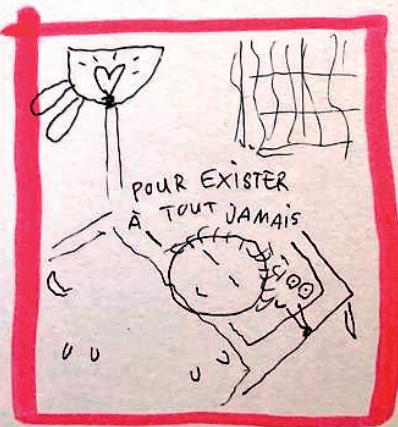 POUR EXISTER
À TOUT JAMAIS